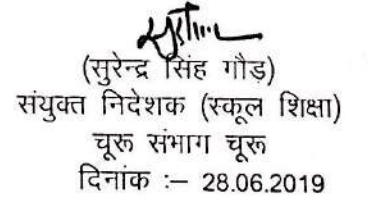 (सुरेन्द्र सिंह गौड़)
संयुक्त निदेशक (स्कूल शिक्षा)
चूरू संभाग चूरू
दिनांक :– 28.06.2019